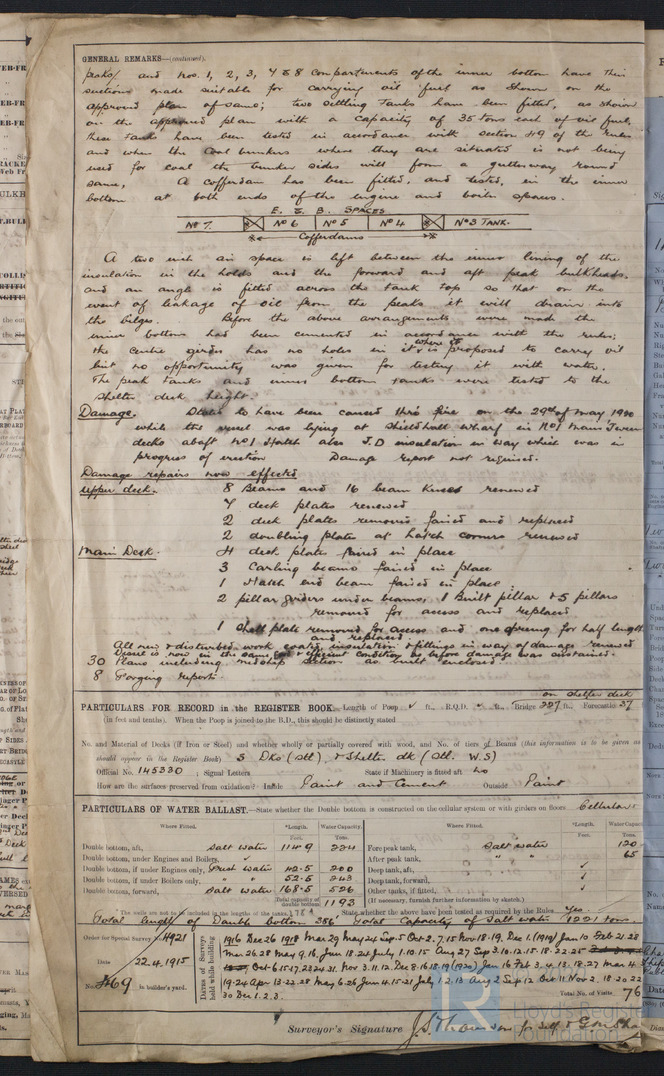 GENERAL REMARKS—(continued).
peaks/ and Nos. 1, 2, 3, 7 & 8 compartments of the inner bottom have their
sections made suitable for carrying oil fuel as shown on the
approved plan of same; two settling tanks have been fitted, as shown
on the approved plan with a capacity of 35 tons each of oil fuel
these tanks have been tested in accordance with section 49 of the rules
and when the coal bunkers where they are situated is not being
used for coal the bunker sides will form a gutterway round
same, A cofferdam has been fitted, and tested, in the inner
bottom at both ends of the engine and boiler spaces.
E. & B. SPACES
No 7. No 6 No 5 No 4 No 3 TANK.
Cofferdams
A two inch air space is left between the inner lining of the
insulation in the holds and the forward and aft peak bulkheads.
and an angle is fitted across the tank top so that on the
event of leakage of oil from the peaks it will drain into
the bilges. Before the above arrangements were made the
inner bottom had been cemented in accordance with the rules;
the centre girder has no holes in it where it is proposed to carry oil
but no opportunity was given for testing it with water.
The peak tanks and inner bottom tanks were tested to the
shelter deck height.
Damage. State to have been caused thro fire on the 29th of May 1920
while the vessel was lying at Shieldhall wharf in No1 main Tween
decks abaft No1 Hatch also J.D insulation in way which was in
progress of erection Damage report not required.
Damage repairs now effected
upper deck. 8 Beams and 16 beam knees renewed
7 deck plates renewed
2 deck plates removed faired and replaced
2 doubling plate at hatch corners renewed
Main Deck. 4 deck plates faired in place
3 Carling beams faired in place
1 Hatch end beam faired in place
2 pillar girders under beams, 1 Built pillar & 5 pillars
removed for access and replaced
1 shell plate removed for access and one spring for half length
and replaced
All new & disturbed work coated, insulation & fittings in way of damage renewed
Vessel is now in the same good & efficient condition as before damage was sustained.
30 Plans including midship section as built enclosed
8 Forging reports.
on shelter deck
PARTICULARS FOR RECORD in the REGISTER BOOK.—Length of Poop ✓ ft., R.Q.D. ft., Bridge 387 ft., Forecastle 37
(in feet and tenths). When the Poop is joined to the B.D., this should be distinctly stated
No. and Material of Decks (if Iron or Steel) and whether wholly or partially covered with wood, and No. of tiers of Beams (this information is to be given as
should appear in the Register Book) 3 Dks (Stl), & Shelter dk (Stl. W.S)
Official No. 145330 ; Signal Letters State if Machinery is fitted aft no
How are the surfaces preserved from oxidation? Inside Paint and Cement Outside Paint
PARTICULARS OF WATER BALLAST.—State whether the Double bottom is constructed on the cellular system or with girders on floors Cellular
Where Fitted. *Length. Feet. Water Capacity. Tons. Where Fitted. *Length. Feet. Water Capacity. Tons.
Double bottom, aft, salt water 114.9 224 Fore peak tank, Salt water 120
Double bottom, under Engines and Boilers, ✓ After peak tank, " " 65
Double bottom, if under Engines only, Fresh water 42.5 200 Deep tank, aft, ✓
Double bottom, if under Boilers only, " " 52.5 243 Deep tank, forward, ✓
Double bottom, forward, salt water 168.5 526 Other tanks, if fitted, ✓
Total capacity of double bottom 1193 (If necessary, furnish further information by sketch).
* The wells are not to be included in the lengths of the tanks. State whether the above have been tested as required by the Rules Yes.
Total length of Double bottom 386' Total Capacity of Salt water 1221 tons.
Order for Special Survey No. 4921
Date 22.4.1915
No. 469 in builder's yard.
Dates of Surveys held while building
1916 Dec 26 1918 Mar 29 May 24 Sep 5 Oct 2. 7. 15 Nov 18. 19. Dec 1. (1919) Jan 10 Feb 21. 28
Mar 26. 28 May 9. 16. Jun 18. 24 July 1. 10. 15 Aug 27 Sep 3. 10. 12. 15. 18. 22. 25
Oct 6. 15. 17. 23. 24. 31. Nov 3. 11. 12. Dec 8. 16. 18. 19 (1920) Jan 16 Feb 3. 4. 13. 18. 27 Mar 4.
19. 24 Apr 13. 22. 28 May 6. 26 Jun 4. 15. 21 July 1. 2. 13 Aug 2 Sep 12 Oct 11 Nov 2. 18. 20. 22
30 Dec 1. 2. 3.
Total No. of Visits 76
Surveyor's Signature for self &
Lloyd's Register
Foundation